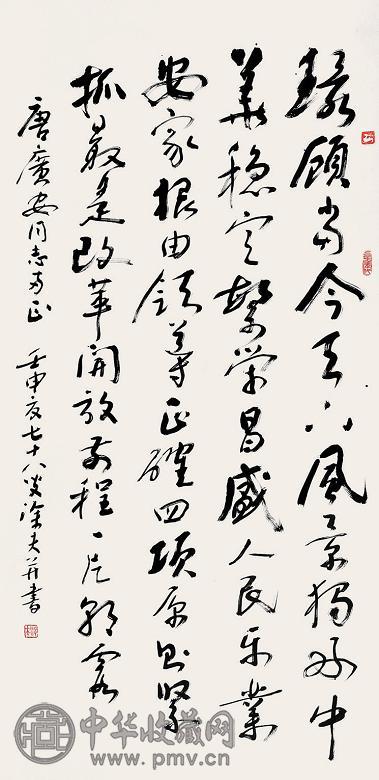 环顾当今天下风景独好中
華稳定繁荣昌盛人民乐業
安家根由领导正確四项原则緊
抓最是改革開放前程一片朝霞
唐廣安同志方正 壬申夏七十八叟涂夫并書
中华收藏网
www.pmv.cn